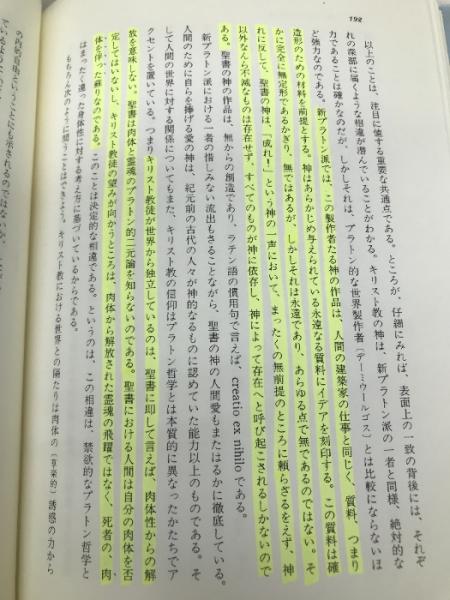 198
以上のことは、注目に値する重要な共通点である。ところが、仔細にみれば、表面上の一致の背後には、それぞ
れの深部に届くような相違が潜んでいることがわかる。キリスト教の神は、新プラトン派の一者と同様、絶対的な
力であることは確かなのだが、しかしそれは、プラトン的な世界製作者（デーミウールゴス）とは比較にならないほ
ど強力なのである。新プラトン派では、この製作者たる神の作品は、人間の建築家の仕事と同じく、質料、つまり
造形のための材料を前提とする。神はあらかじめ与えられている永遠なる質料にイデアを刻印する。この質料は確
かに完全に無定形であるかぎり、無ではあるが、しかしそれは永遠であり、あらゆる点で無であるのではない。そ
れに反して、聖書の神は、「成れ！」という神の一声において、まったくの無前提のところに頼らざるをえず、神
以外なんら不滅なものは存在せず、すべてのものが神に依存し、神によって存在へと呼び起こされるしかないので
ある。聖書の神の作品は、無からの創造であり、ラテン語の慣用句で言えば、creatio ex nihilo である。
新プラトン派における一者の惜しみない流出もさることながら、聖書の神の人間愛もまたはるかに徹底している。
人間のために自らを捧げる愛の神は、紀元前の古代の人々が神的なるものに認めていた能力以上のものである。そ
して人間の世界に対する関係についてもまた、キリスト教の信仰はプラトン哲学とは本質的に異なったかたちでア
クセントを置いている。つまりキリスト教徒が世界から独立しているのは、聖書に即して言えば、肉体性からの解
放を意味しない。聖書は肉体と霊魂のプラトン的二元論を知らないのである。聖書における人間は自分の肉体を否
定してはいないし、キリスト教徒の望みが向かうところは、肉体から解放された霊魂の飛躍ではなく、死者の、肉
体を伴った蘇りなのである。このことは決定的な相違である。というのは、この相違は、禁欲的なプラトン哲学と
はまったく違った身体性に対する考え方に基づいているからである。
もちろん次のように問うことはできよう。キリスト教における世界との隔たりは肉体の（享楽的）誘惑の力から
の内的自由ということにも示されるのではないか、